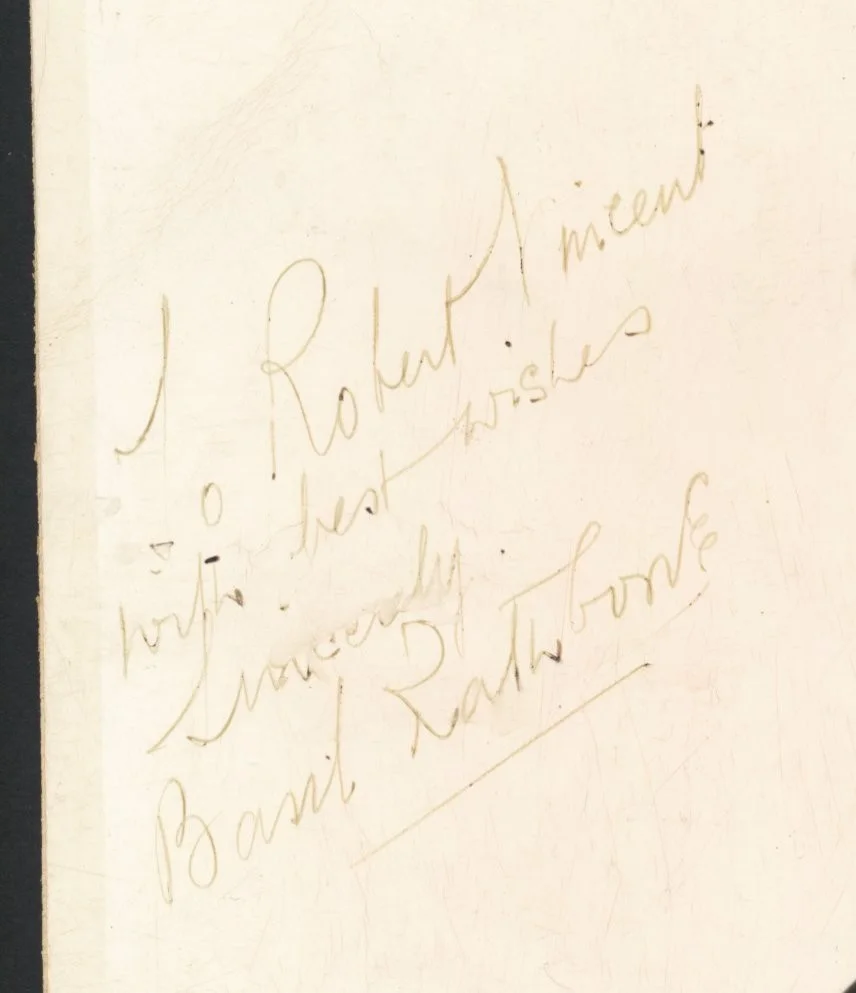 To Robert Vincent
with best wishes
Sincerely.
Basil Rathbone